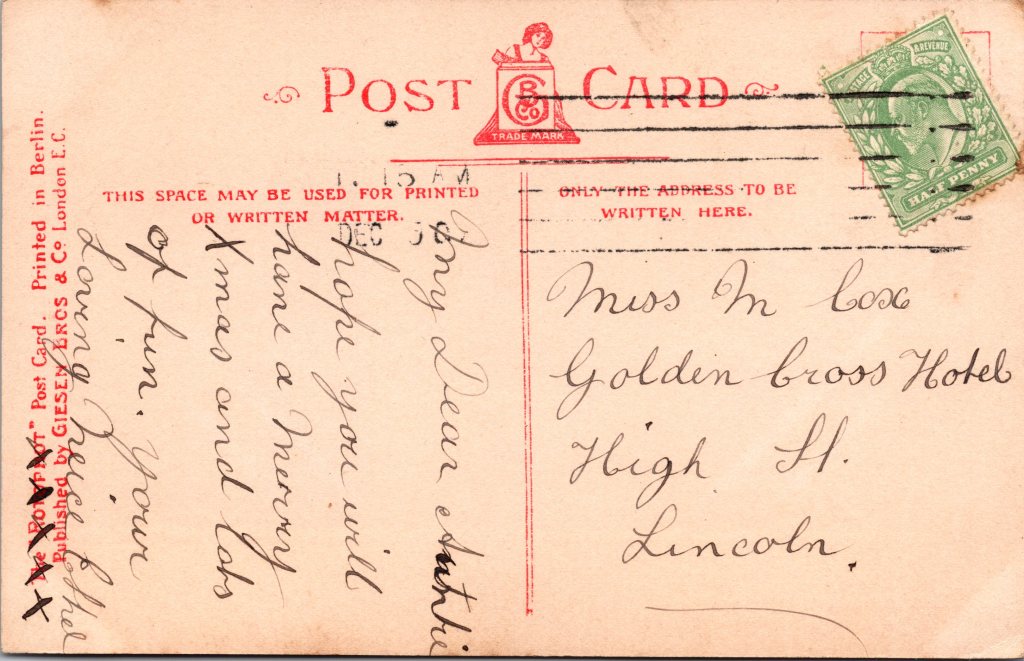 POST CARD
G B & Co
TRADE MARK
& REVENUE
HALF PENNY
1. 15 AM
DEC
THIS SPACE MAY BE USED FOR PRINTED
OR WRITTEN MATTER.
ONLY THE ADDRESS TO BE
WRITTEN HERE.
My Dear Auntie
hope you will
have a Merry
Xmas and lots
of fun. Your
Loving Neice Ethel
x x x x x
Miss M Cox
Golden Cross Hotel
High St.
Lincoln.
The Post Card. Printed in Berlin.
Published by GIESEN BROS & Co London E.C.